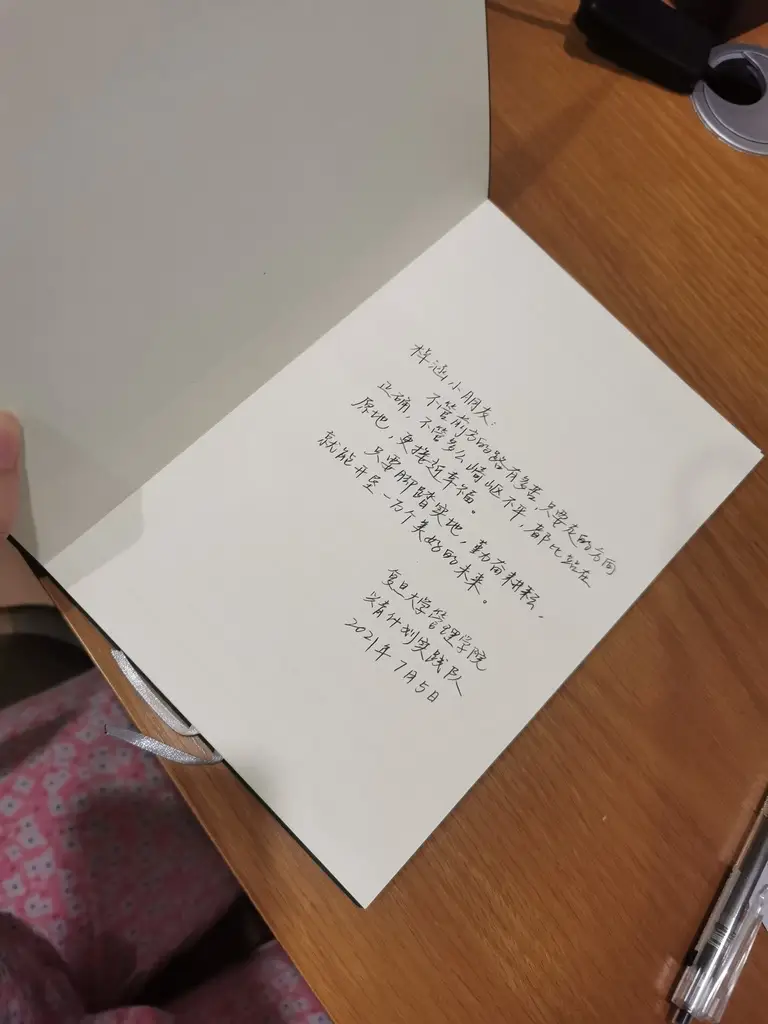 梓涵小朋友:
不管前方的路有多苦,只要走的方向
正确,不管多么崎岖不平,都比站在
原地,更接近幸福。
只要脚踏实地,勤奋耕耘,
就能开垦一万个美好的未来。
复旦大学管理学院
以青计划实践队
2021年7月5日